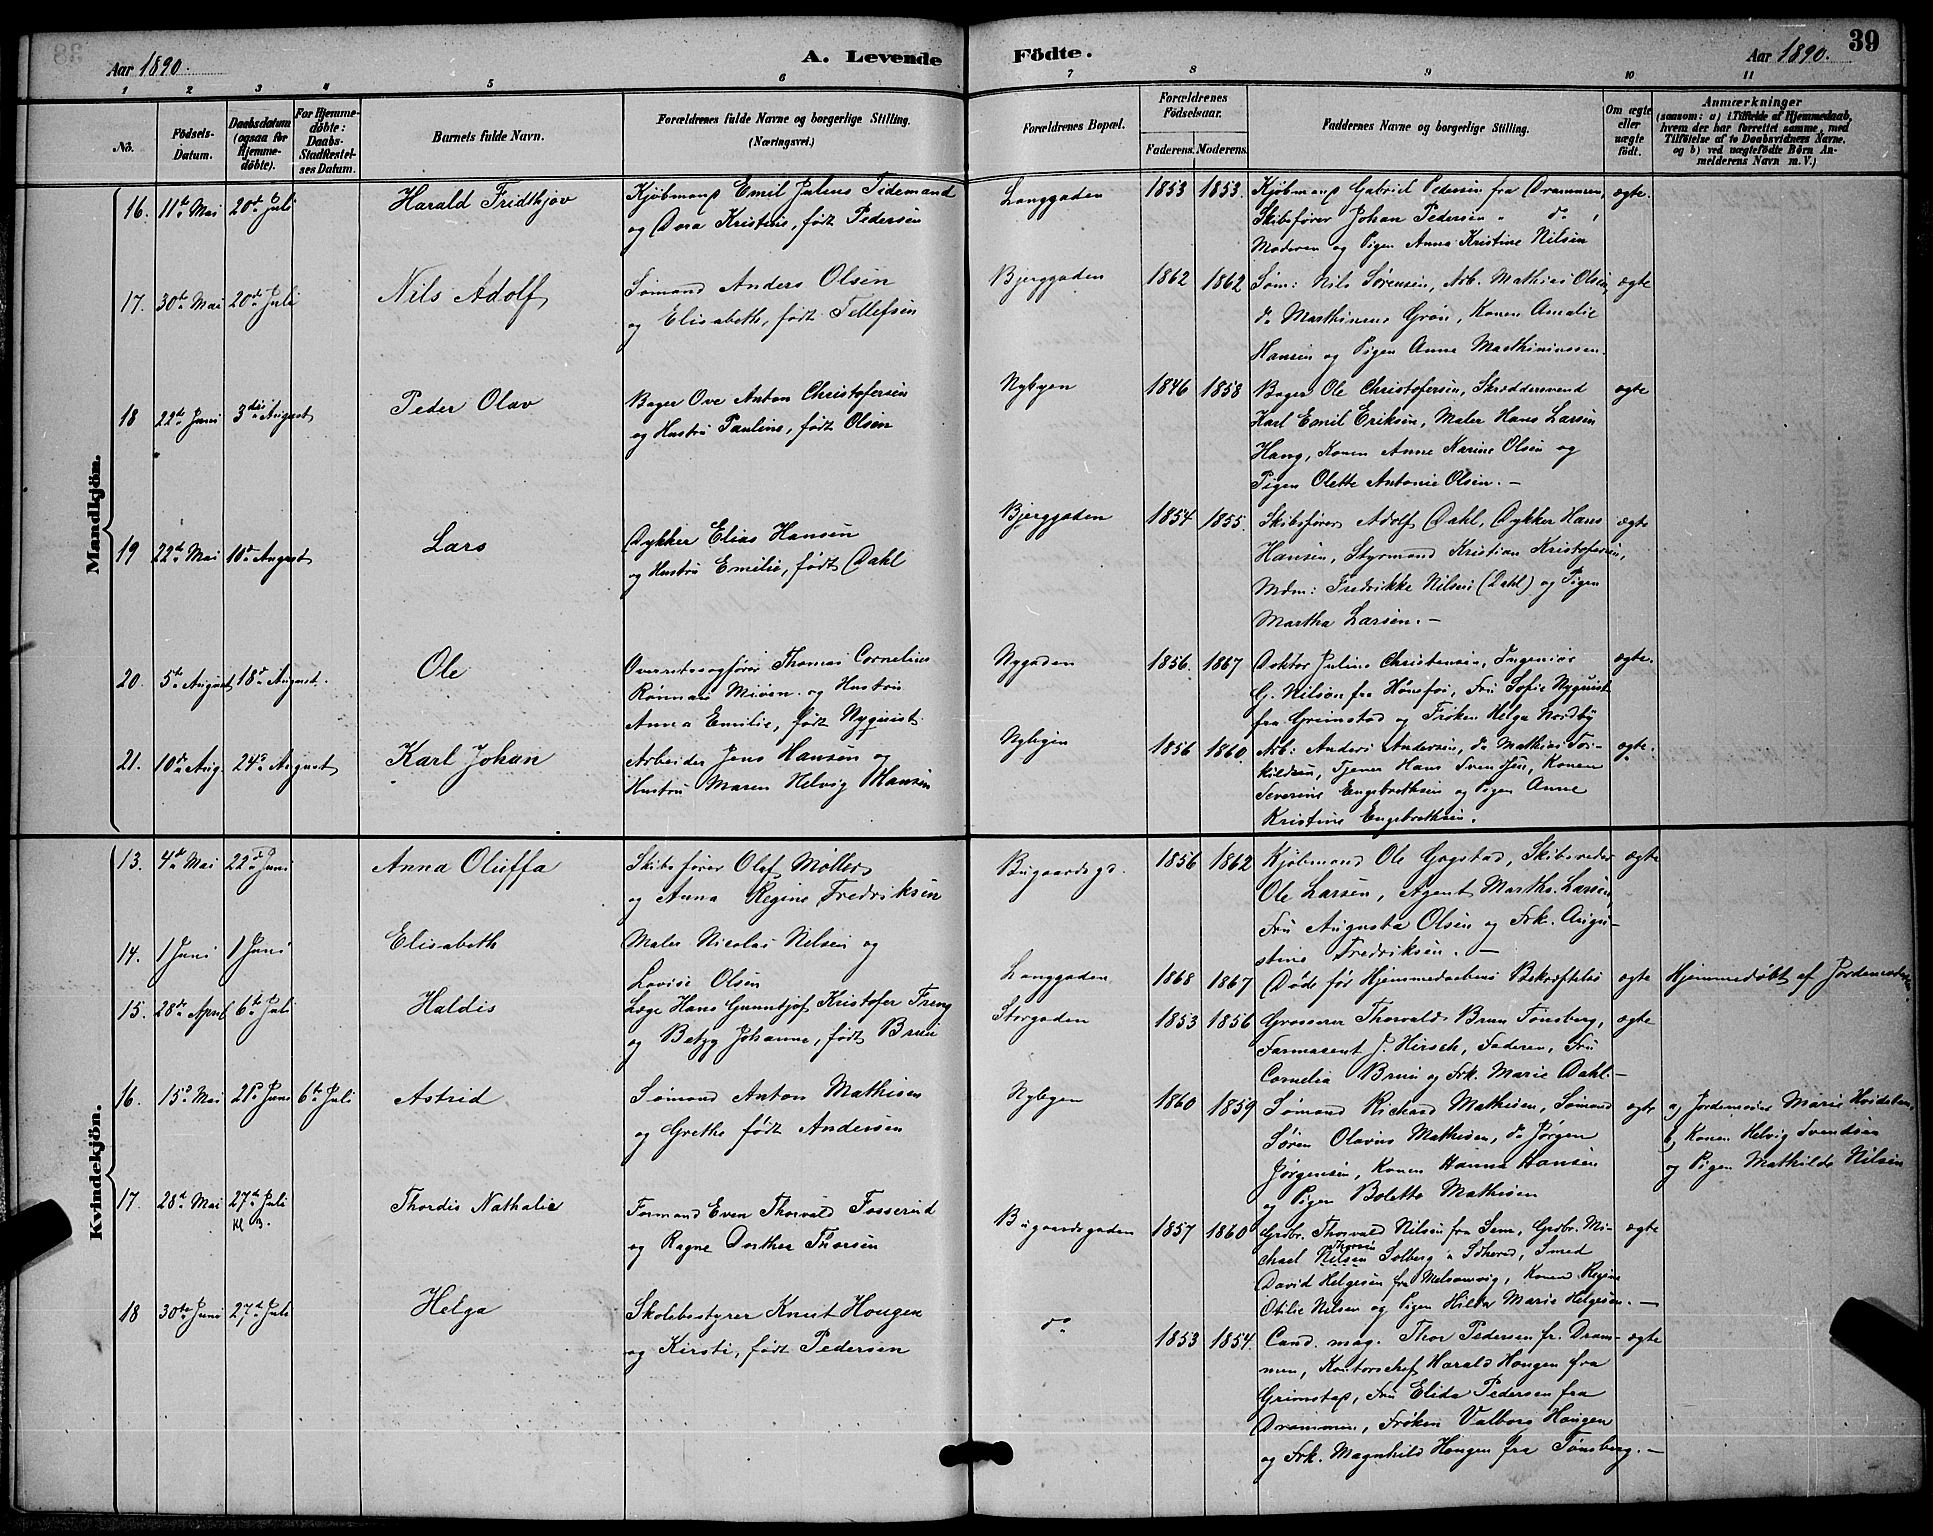 39
Aar 1890. A. Levende Födte. Aar 1890.
1 2 3 4 5 6 7 8 9 10 11
No. Födsels-Datum. Daabsdatum (ogsaa for Hjemmedöbte). For Hjemmedöbte: Daabs-Stadfæstelses Datum. Barnets fulde Navn. Forældrenes fulde Navne og borgerlige Stilling. (Næringsvei.) Forældrenes Bopæl. Forældrenes Födselsaar. Faderens. Moderens. Faddernes Navne og borgerlige Stilling. Om ægte eller uægte födt. Anmærkninger (saasom: a) i Tilfælde af Hjemmedaab, hvem der har forrettet samme, med Tilföielse af to Daabsvidners Navne, og b) ved uægtefödte Börn Anmelderens Navn m. V.)
Mandkjön.
16. 11te Mai 20de Juli Harald Fridthjov Kjøbmand Emil Julius Tidemand Langgaden 1853 1853. Kjøbmand Gabriel Pedersen fra Drammen, ægte.
og Dora Kristine, født Pedersen Skibsfører Johan Pedersen " do,
Moderen og Pigen Anna Kristine Nilsen
17. 30te Mai 20de Juli Nils Adolf Sømand Anders Olsen Bjerggaden 1862 1862 Søm: Nils Sørensen, Arb. Mathias Olsen, ægte
og Elisabeth, født Tellefsen do Marthinius Grøn, Konen Amalie
Hansen og Pigen Anna Marthiniussen.
18 22de Juni 3die August Peder Olav Bager Ove Anton Christofersen Nybyen 1846 1858 Bager Ole Christofersen, Skræddersvend ægte
og Hustru Pauline, født Olsen Karl Emil Eriksen, Maler Hans Larsen
Haug, Konen Anne Karine Olsen og
Pigen Olette Antonie Olsen. -
19 22de Mai 10de August Lars Dykker Elias Hansen Bjerggaden 1854 1855. Skibsfører Adolf Dahl, Dykker Hans ægte
og Hustru Emilie, født Dahl Hansen, Styrmand Kristian Kristofersen,
Mdm: Fredrikke Nilsen (Dahl) og Pigen
Martha Larsen. -
20. 5te August 18de August. Ole Overretssagfører Thomas Cornelius Nygaden 1856. 1867 Doktor Julius Christensen, Ingeniør ægte.
og Hustru G. Nilson fra Hønefos, Fru Sofie Nyquist
Anna Emilie, født Nyquist. fra Grimstad og Frøken Helga Nordby
21. 10de Aug. 24de August Karl Johan Arbeider Jens Hansen og Nybyen 1856 1860. Arb: Anders Andersen, do Mathias Tor- ægte.
Hustru Maren Helvig Hansen kildsen, Tjener Hans Svendsen, Konen
Severine Engebrethsen og Pigen Anne
Kristine Engebrethsen.
Kvindekjön.
13. 4de Mai 22de Juni Anna Oluffa Skibsfører Olof Møller Bugaardsgd. 1856 1862 Kjøbmand Ole Gogstad, Skibsreder ægte
og Anna Regine Fredriksen Ole Larsen, Agent Marth. Larsen,
Fru Augusta Olsen og Frk. Augu-
stine Fredriksen. -
14. 1 Juni 1 Juni Elisabeth Maler Nicolai Nilsen og
Lovise Olsen Langgaden 1868 1867 Døde før Hjemmedaabens Bekræftelse ægte Hjemmedøbt af Jordemoderen.
15. 28de April 6te Juli Haldis Læge Hans Gunntjof Kristofer Storgaden 1853 1856 Grosserer Thorvald Bruun Tønsberg, ægte
og Betzy Johanne, født Bruun Farmaceut J. Hirsch, Faderen, Fru
Cornelia Bruun og Frk. Marie Dahl. -
16. 15de Mai 21de Juni 6te Juli Astrid Sømand Anton Mathisen Nybyen 1860 1859 Sømand Richard Mathisen, Sømand ægte a) Jordemoder Marie
og Grethe født Andersen Søren Olavus Mathisen, do Jørgen b) Konen Helvig Svendsen
Jørgensen, Konen Hanna Hansen og Pigen Mathilde Nilsen
og Pigen Bolette Mathisen
17. 28de Mai 27de Juli Thordis Nathalie Formand Even Thorvald Fosserud Bugaardsgaden 1857 1860 Grdbr. Thorvald Nilsen fra Sem, Grdbr. Mi- ægte
og Ragne Dorthea Thorsen chael Nilsen Thorsen Solberg " Sdherad, Smed
David Helgesen fra Melsomvig, Konen Regine
Otilie Nilsen og Pigen Hilda Marie Helgesen. -
18 30te Juni 27de Juli Helga Skolebestyrer Knut Hougen do
og Kirsti, født Pedersen 1853 1854. Cand. mag. Thor Pedersen fr. Dram- ægte
men, Kontorschef Harald Hougen fra
Grimstad, Fru Elida Pedersen fra
Drammen, Frøken Valborg Hougen
og Frk. Magnhild Hougen fra Tønsberg. -